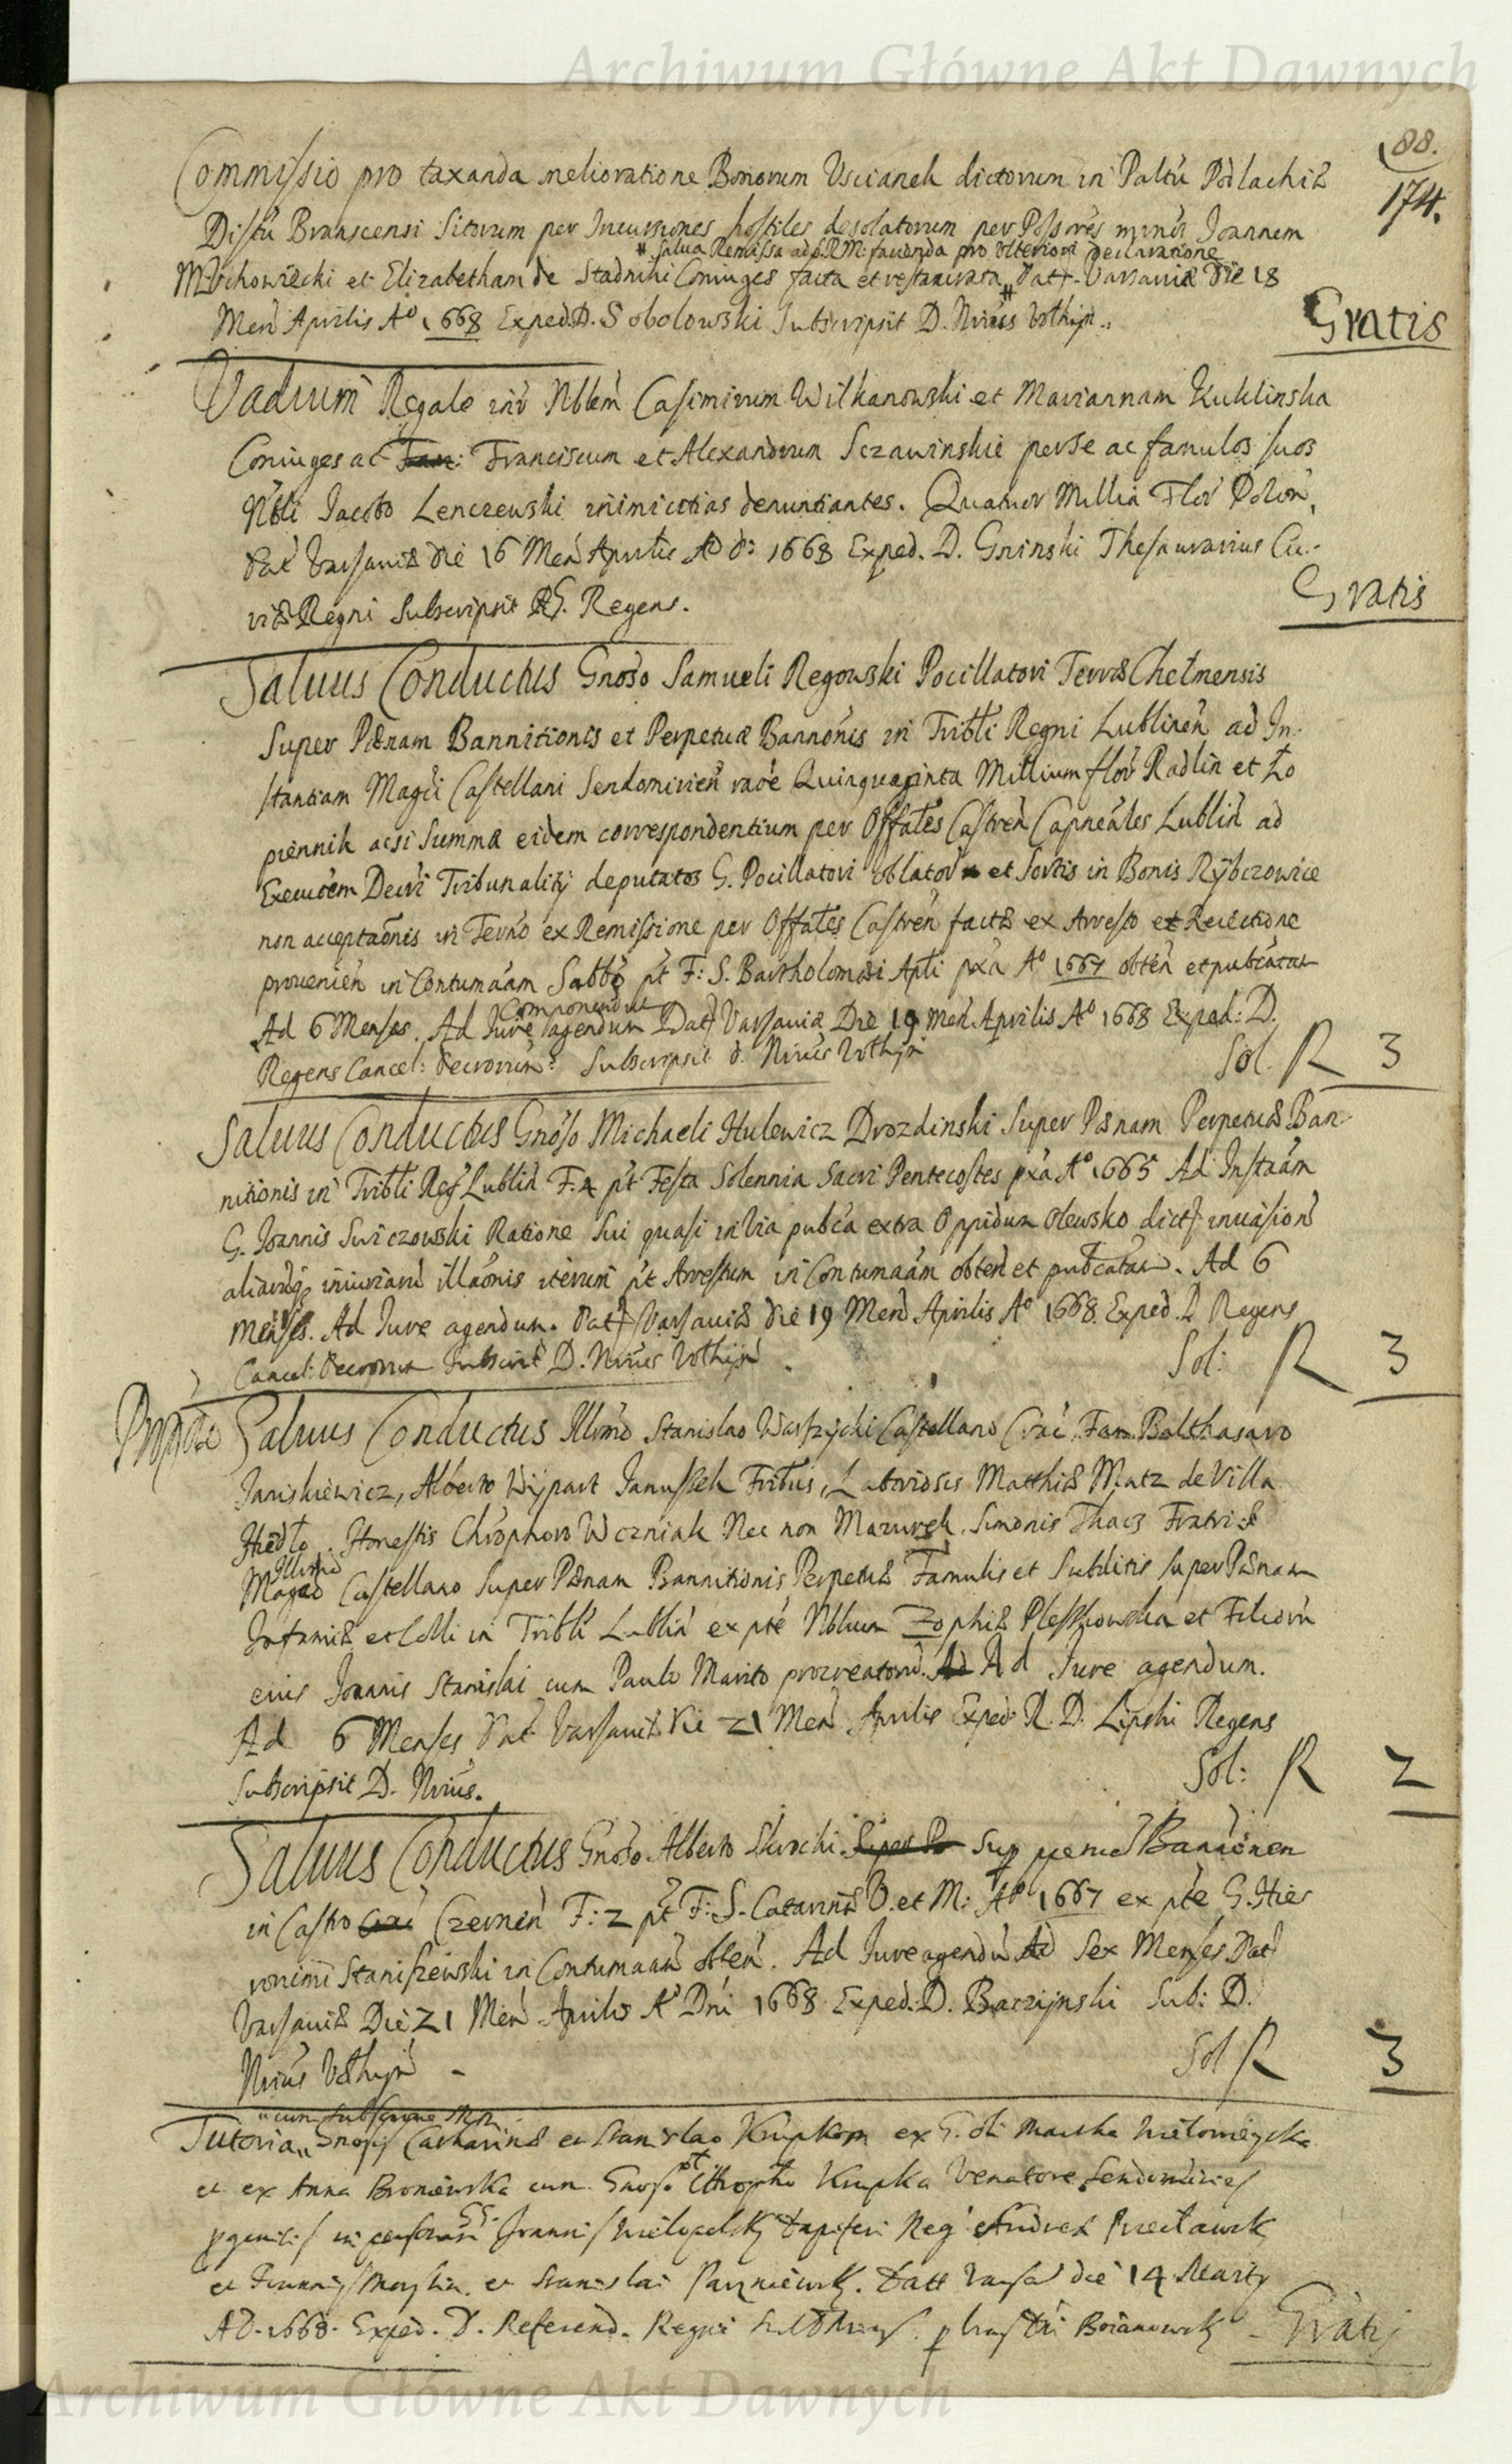 Archiwum Główne Akt Dawnych
88.
174.
Commissio pro taxanda melioratione Bonorum Uscianek dictorum in Paltu Podlachiæ
Distu Branscensi Sitorum per Incursiones hostiles desolatorum per Possores mino Joannem
# Salva Remissa ad S.R.M: facienda pro ulteriori declaratione
et Elizabetham de Stadniki Coniuges facta et restaurata # Datt. Varsaviæ Die 18
Men Aprilis Aº 1668 Exped. D. Sobolowski Subscripsit D. Nrius Vothyn.
Gratis
Vadium Regale intr Nblem Casimirum Wilkanowski et Mariannam Kuklinska
Coniuges ac Fran: Franciscum et Alexandrum Sczawinskie per se ac famulos suos
Nbli Jacobo Lenczewski inimicitias denuntiantes. Quatuor Millia Flor Polon,
Dat Varsaviæ die 16 Men Aprilis A D: 1668 Exped. D. Gninski Thesaurarius Cu-
riæ Regni Subscripsit R. Regens.
Gratis
Salvus Conductus Gnoso Samueli Regowski Pocillatori Terræ Chelmensis
Super Pænam Bannitionis et Perpetuæ Bannonis in Tribli Regni Lublinen ad In-
stantiam Magci Castellani Sendomirien raoe Quinquaginta Millium flor Radlin et Lo
piennik acsi Summæ eidem correspondentium per Offales Castren Capneales Lublin ad
Execuoem Decri Tribunalitij deputatos G. Pocillatori oblator et Sortis in Bonis Rybczowice
non acceptaonis in Terno ex Remissione per Offales Castren factæ ex Arresto et Reiectione
provenien in Contumaam Sabbo pt F: S. Bartholomæi Apli pxa Aº 1667 obten et publicatar
Componendum
Ad 6 Menses. Ad Jure agendum Datt Varsaviæ Die 19 Men Aprilis Aº 1668 Exped: D.
Regens Cancel: Decrorum: Subscripsit D. Nrius Vothyn
Sol. R 3
Salvus Conductus Gnoso Michaeli Hulewicz Drozdinski Super Pænam Perpetuæ Ban-
nitionis in Tribli Reg Lublin F. 4 pt Festa Solennia Sacri Pentecostes pxa Aº 1665 Ad Instaam
G. Joannis Swiczowski Ratione Sui quasi in via pubca extra Oppidum Olewsko dict invasion
aliarumq iniuriarum illaonis iterum pt Arrestum in Contumaam obten et pubcatar. Ad 6
menses. Ad Jure agendum. Datt Varsaviæ die 19 Men Aprilis Aº 1668. Exped. D Regens
Cancel: Decrorum Subscript D. Nrius Vothyn
Sol: R 3
Salvus Conductus Illmo Stanislao Warszycki Castellano Crac, Fam Balthasaro
Janiskiewicz, Alberto Wypart Januszek Fribus, Laboriosis Matthiæ Matz de Villa
Honestis Chrophoro Wczniak Nec non Mazurek. Simonis Thacz Fratri
Illmo
Magco Castellano Super Pænam Bannitionis Perpetuæ Famulis et Subditis super Pænam
Infamiæ et Colli in Tribli Lublin ex pte Nblium Zophiæ Pleszkowska et Filiorum
eius Joannis Stanislai cum Paulo Marito procreatorum. Ad Ad Jure agendum.
Ad 6 Menses Dat Varsaviæ Die 21 Men Aprilis Exped: R. D. Lipski Regens
Subscripsit D. Nrius.
Sol: R 2
Salvus Conductus Gnoso Alberto Skrocki Super Pæ Sup pænas Bannionen
in Castro Crac Czernen F: 2 pt F: S. Catarinæ V. et M: Aº 1667 ex pte G. Hier
ronimi Staniszewski in Contumaam obten. Ad Jure agendum Ad Sex Menses Datt
Varsaviæ Die 21 Men Aprilis Aº Dni 1668 Exped. D. Baczynski Sub: D.
Nrius Vothyn -
Sol R 3
Tutoria Gnosis Catharinæ et Stanislao Krupkom ex G. oli
et ex Anna Broniewska cum Gnoso Krupka Venatore Sendomirien
Joannis Wielopolsky Dapiferi Reg Andreæ
et Joannis et Stanislai Datt Varsa die 14 Marty
AD. 1668. Exped. D. Referend. Regni Boianowsky - Gratis
Archiwum Główne Akt Dawnych